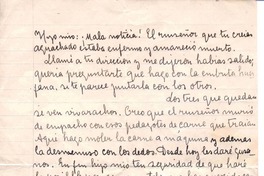 Hijo mio: ¡Mala noticia! El ruiseñor que tu creias
agachado estaba enfermo y amaneció muerto.
Llamé a tu direcion y me dijeron habias salido;
queria preguntarte que hago con la
jana, si te parece juntarla con los otros.
dos tres que quedan
se ven vivarachos. Creo que el ruiseñor murió
de empacho con esos pedazotes de carne que traian
Aqui hago moler la carne a máquina y ademas
la desmenuso con los dedos. Desde hoy les daré gusa-
nos. En fin hijo mio ten seguridad de que haré